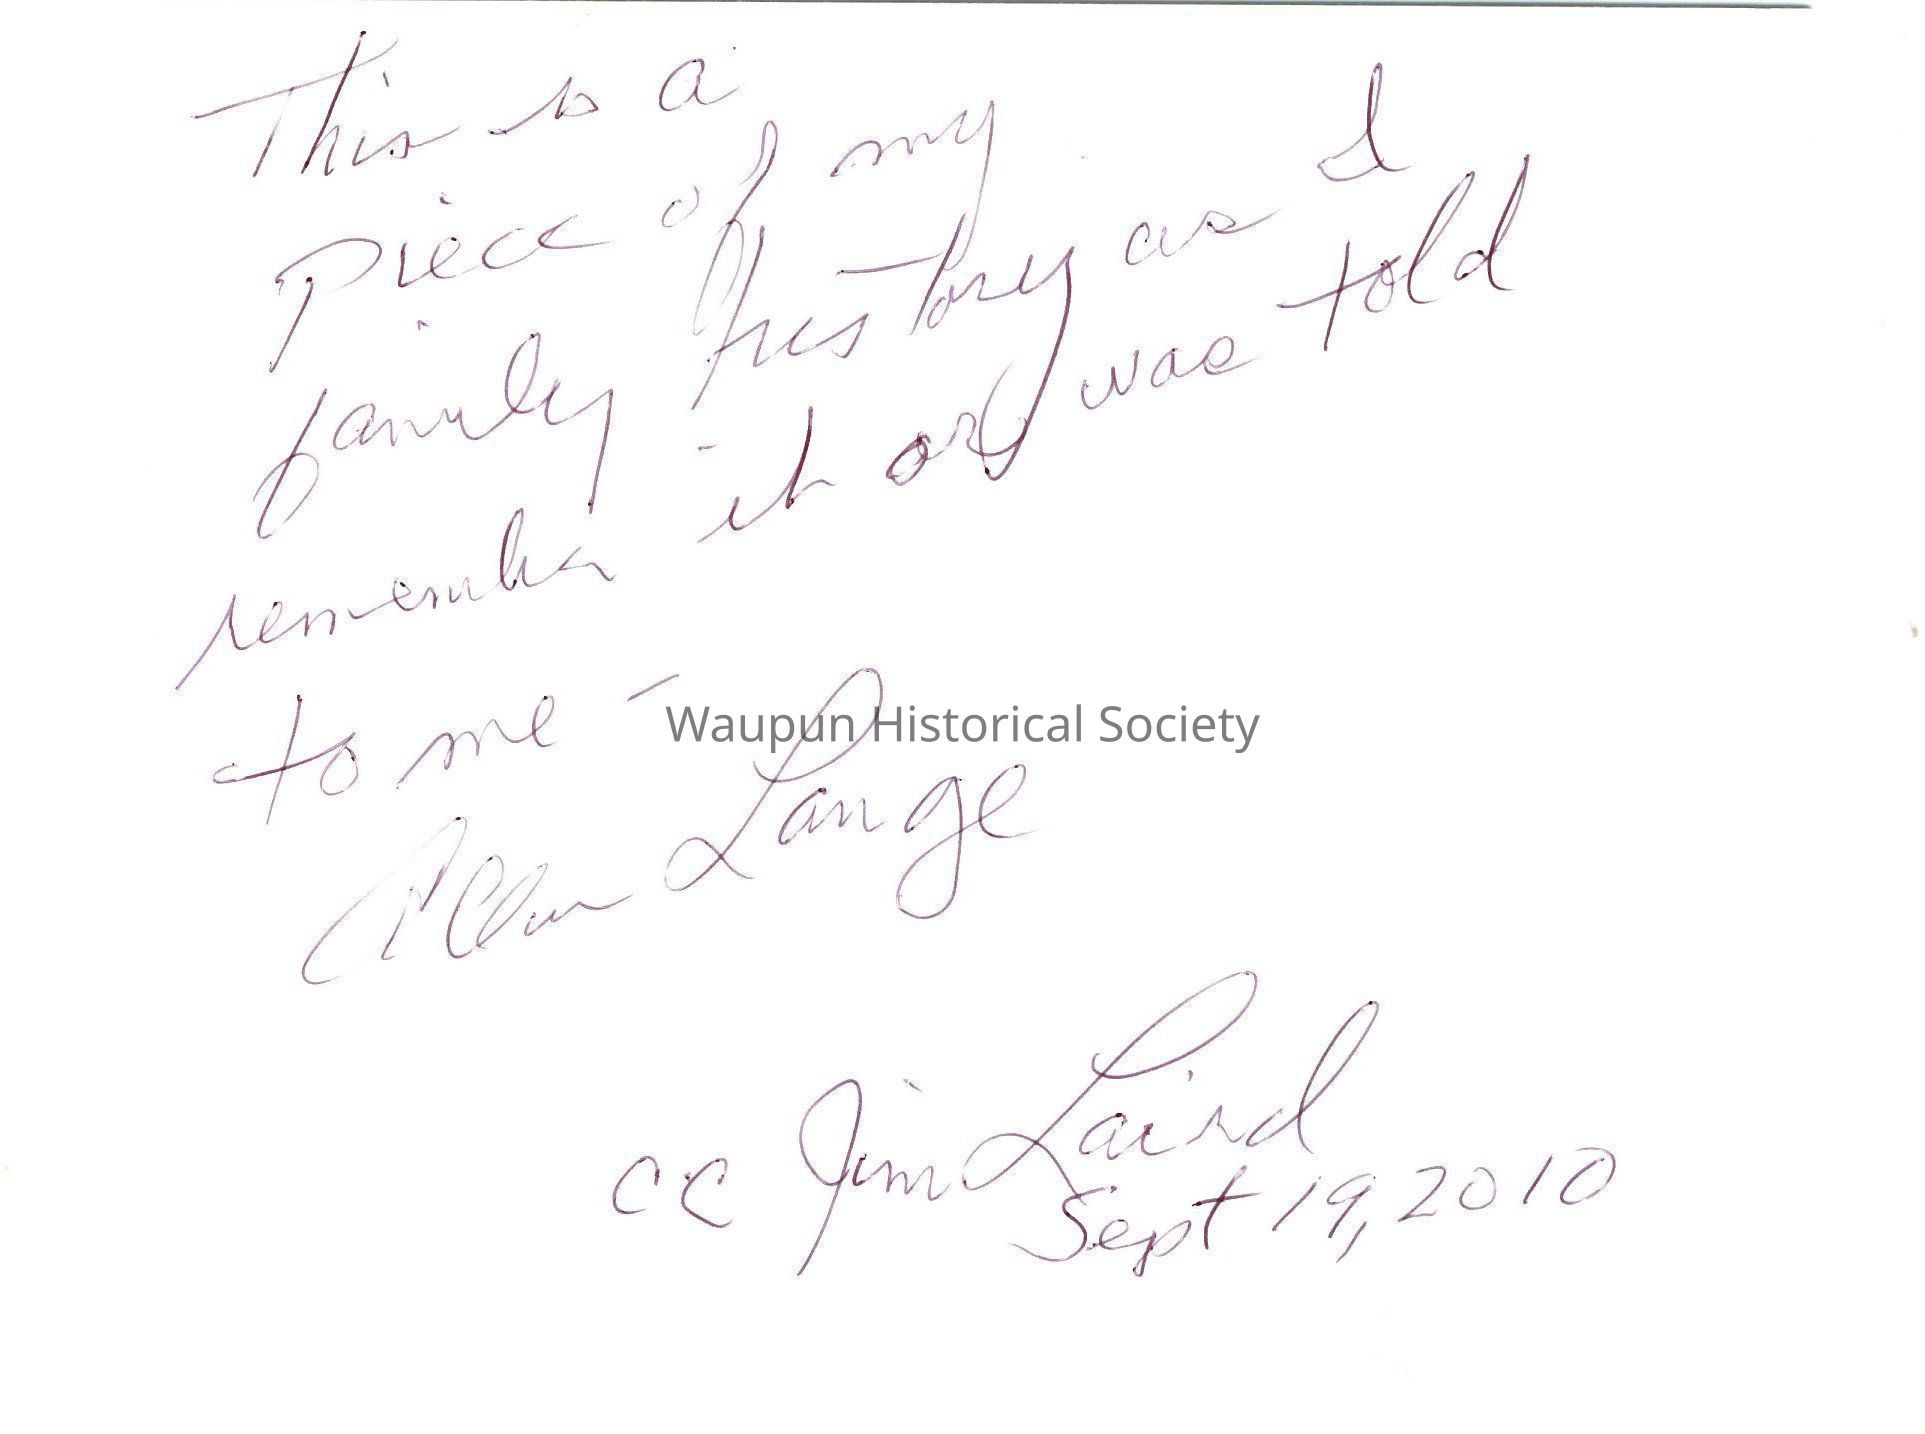 This is a
piece of my
family history as I
remember it or was told
to me -
Waupun Historical Society
Allan Lange
cc Jim Laird
Sept 19, 2010